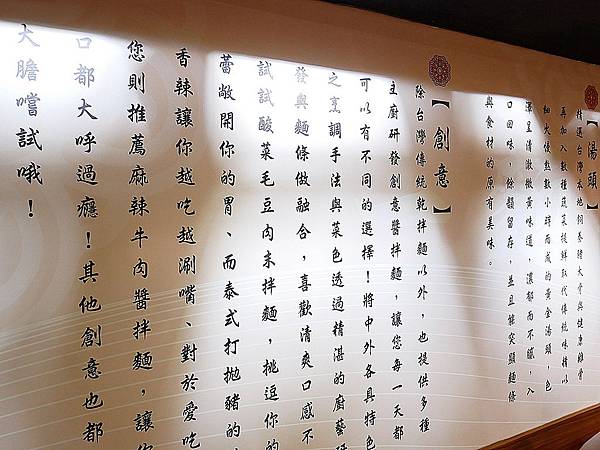 【湯頭】
精選台灣本地飼養豬大骨與健康雞骨
再加入數種蔬菜提鮮取代傳統味精以
細火慢熬數小時而成的黃金湯頭，色
澤呈清澈微黃味道，濃郁而不膩，入
口回味，餘韻留存，並且能突顯麵條
與食材的原有美味。
【創意】
除台灣傳統乾拌麵以外，也提供多種
主廚研發創意醬拌麵，讓您每一天都
可以有不同的選擇！將中外各具特色
之烹調手法與菜色透過精湛的廚藝研
發與麵條做融合，喜歡清爽口感不
試試酸菜毛豆肉末拌麵，挑逗你的
蕾敞開你的胃、而泰式打拋豬的
香辣讓你越吃越涮嘴、對於愛吃
您則推薦麻辣牛肉醬拌麵，讓你
口都大呼過癮！其他創意也都
大膽嚐試哦！